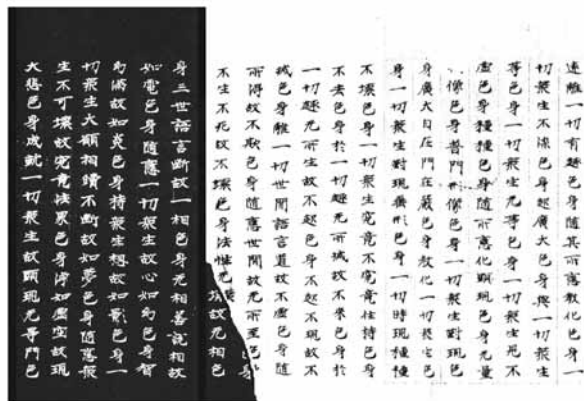 遠離一切有趣色身隨其所應教化色身一
切眾生不染色身超廣大色身與一切眾生
等色身一切眾生无等色身一切眾生見不
虛色身種種色身隨所應化顯現色身无量
像色身普門形像色身一切眾生對現色
身廣大自在門莊嚴色身教化一切眾生色
身一切眾生對現廣形色身一切時現種種
不壞色身一切眾生究竟不究竟住持色身
不去色身於一切趣无所滅故不來色身於
一切趣无所生故不起色身不起不現故不
滅色身離一切世間語言道故不虛色身隨
所得故不欺色身隨應世間故无所至色身
不生不死故不壞色身法性无壞故无相色
身三世語言斷故一相色身无相善說相故
如電色身隨應一切眾生故心如幻色身智
幻滿故如炎色身持眾生想故如影色身一
切眾生大願相續不斷故如夢色身隨應眾
生不可壞故究竟法界色身淨如虛空故現
大悲色身成就一切眾生故顯現无㝵門色